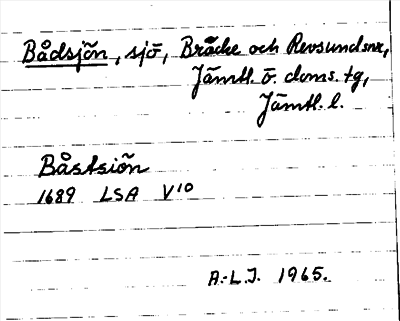 Bådsjön, sjö, Bräcke och Revsunds snr,
Jämtl. ö. doms. tg,
Jämtl. l.
Båstsiön
1689 LSA V¹⁰
A.-L.J. 1965.